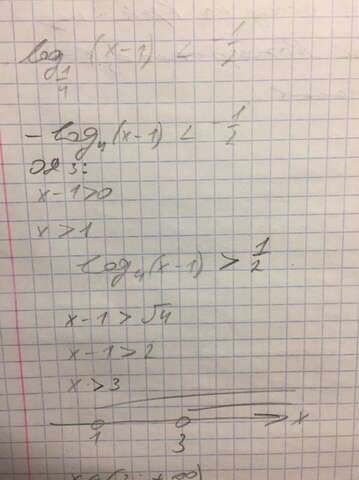 log_{1/4} (x-1) < -1/2
-log_4 (x-1) < -1/2
ОДЗ:
x-1>0
x>1
log_4 (x-1) > 1/2
x-1 > √4
x-1>2
x>3
1 3 x